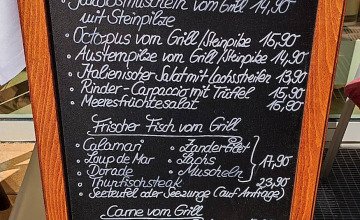 Jakobsmuscheln vom Grill 14,90
mit Steinpilze
• Octopus vom Grill/Steinpilze 15,90
• Austernpilze vom Grill/Steinpilze 14,90
• Italienischer Salat mit Lachsstreifen 13,90
• Rinder-Carpaccio mit Trüffel 15,90
• Meeresfrüchtesalat 15,90
Frischer Fisch vom Grill
• Calamari • Zanderfilet
• Loup de Mar • Lachs 17,90
• Dorade • Muscheln
• Thunfischsteak 23,90
• Seeteufel oder Seezunge (auf Anfrage)
Carne vom Grill